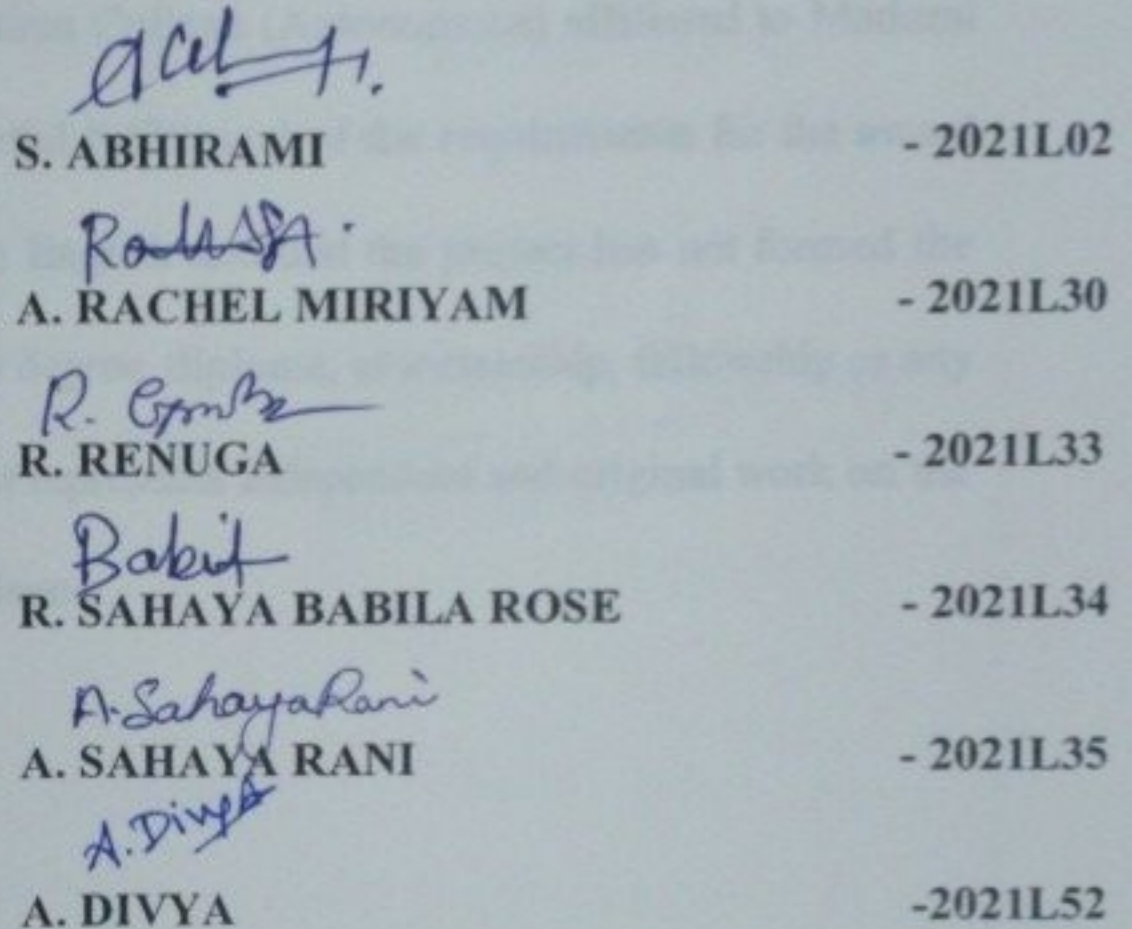 S. ABHIRAMI - 2021L02
A. RACHEL MIRIYAM - 2021L30
R.
R. RENUGA - 2021L33
R. SAHAYA BABILA ROSE - 2021L34
A. Sahaya Rani
A. SAHAYA RANI - 2021L35
A. Divya
A. DIVYA -2021L52